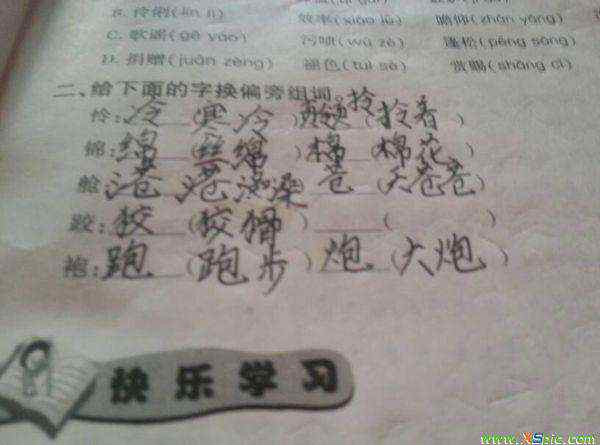 B. 伶俐(lín lì) 效率(xiào lǜ) (zhān yǎng)
C. 歌谣(gē yáo) 污 (wū 蓬松(pēng sōng)
D. 捐赠(juān zèng) 褪色(tuì sè) 赏赐(shǎng cì)
二、给下面的字换偏旁组词。
伶:冷(寒冷) 拎(拎着)
锦:绵(丝绵)棉(棉花)
舱: 苍
:狡(狡猾) ( )
袍:跑(跑步)炮(大炮)
快乐学习
www.XSpic.com